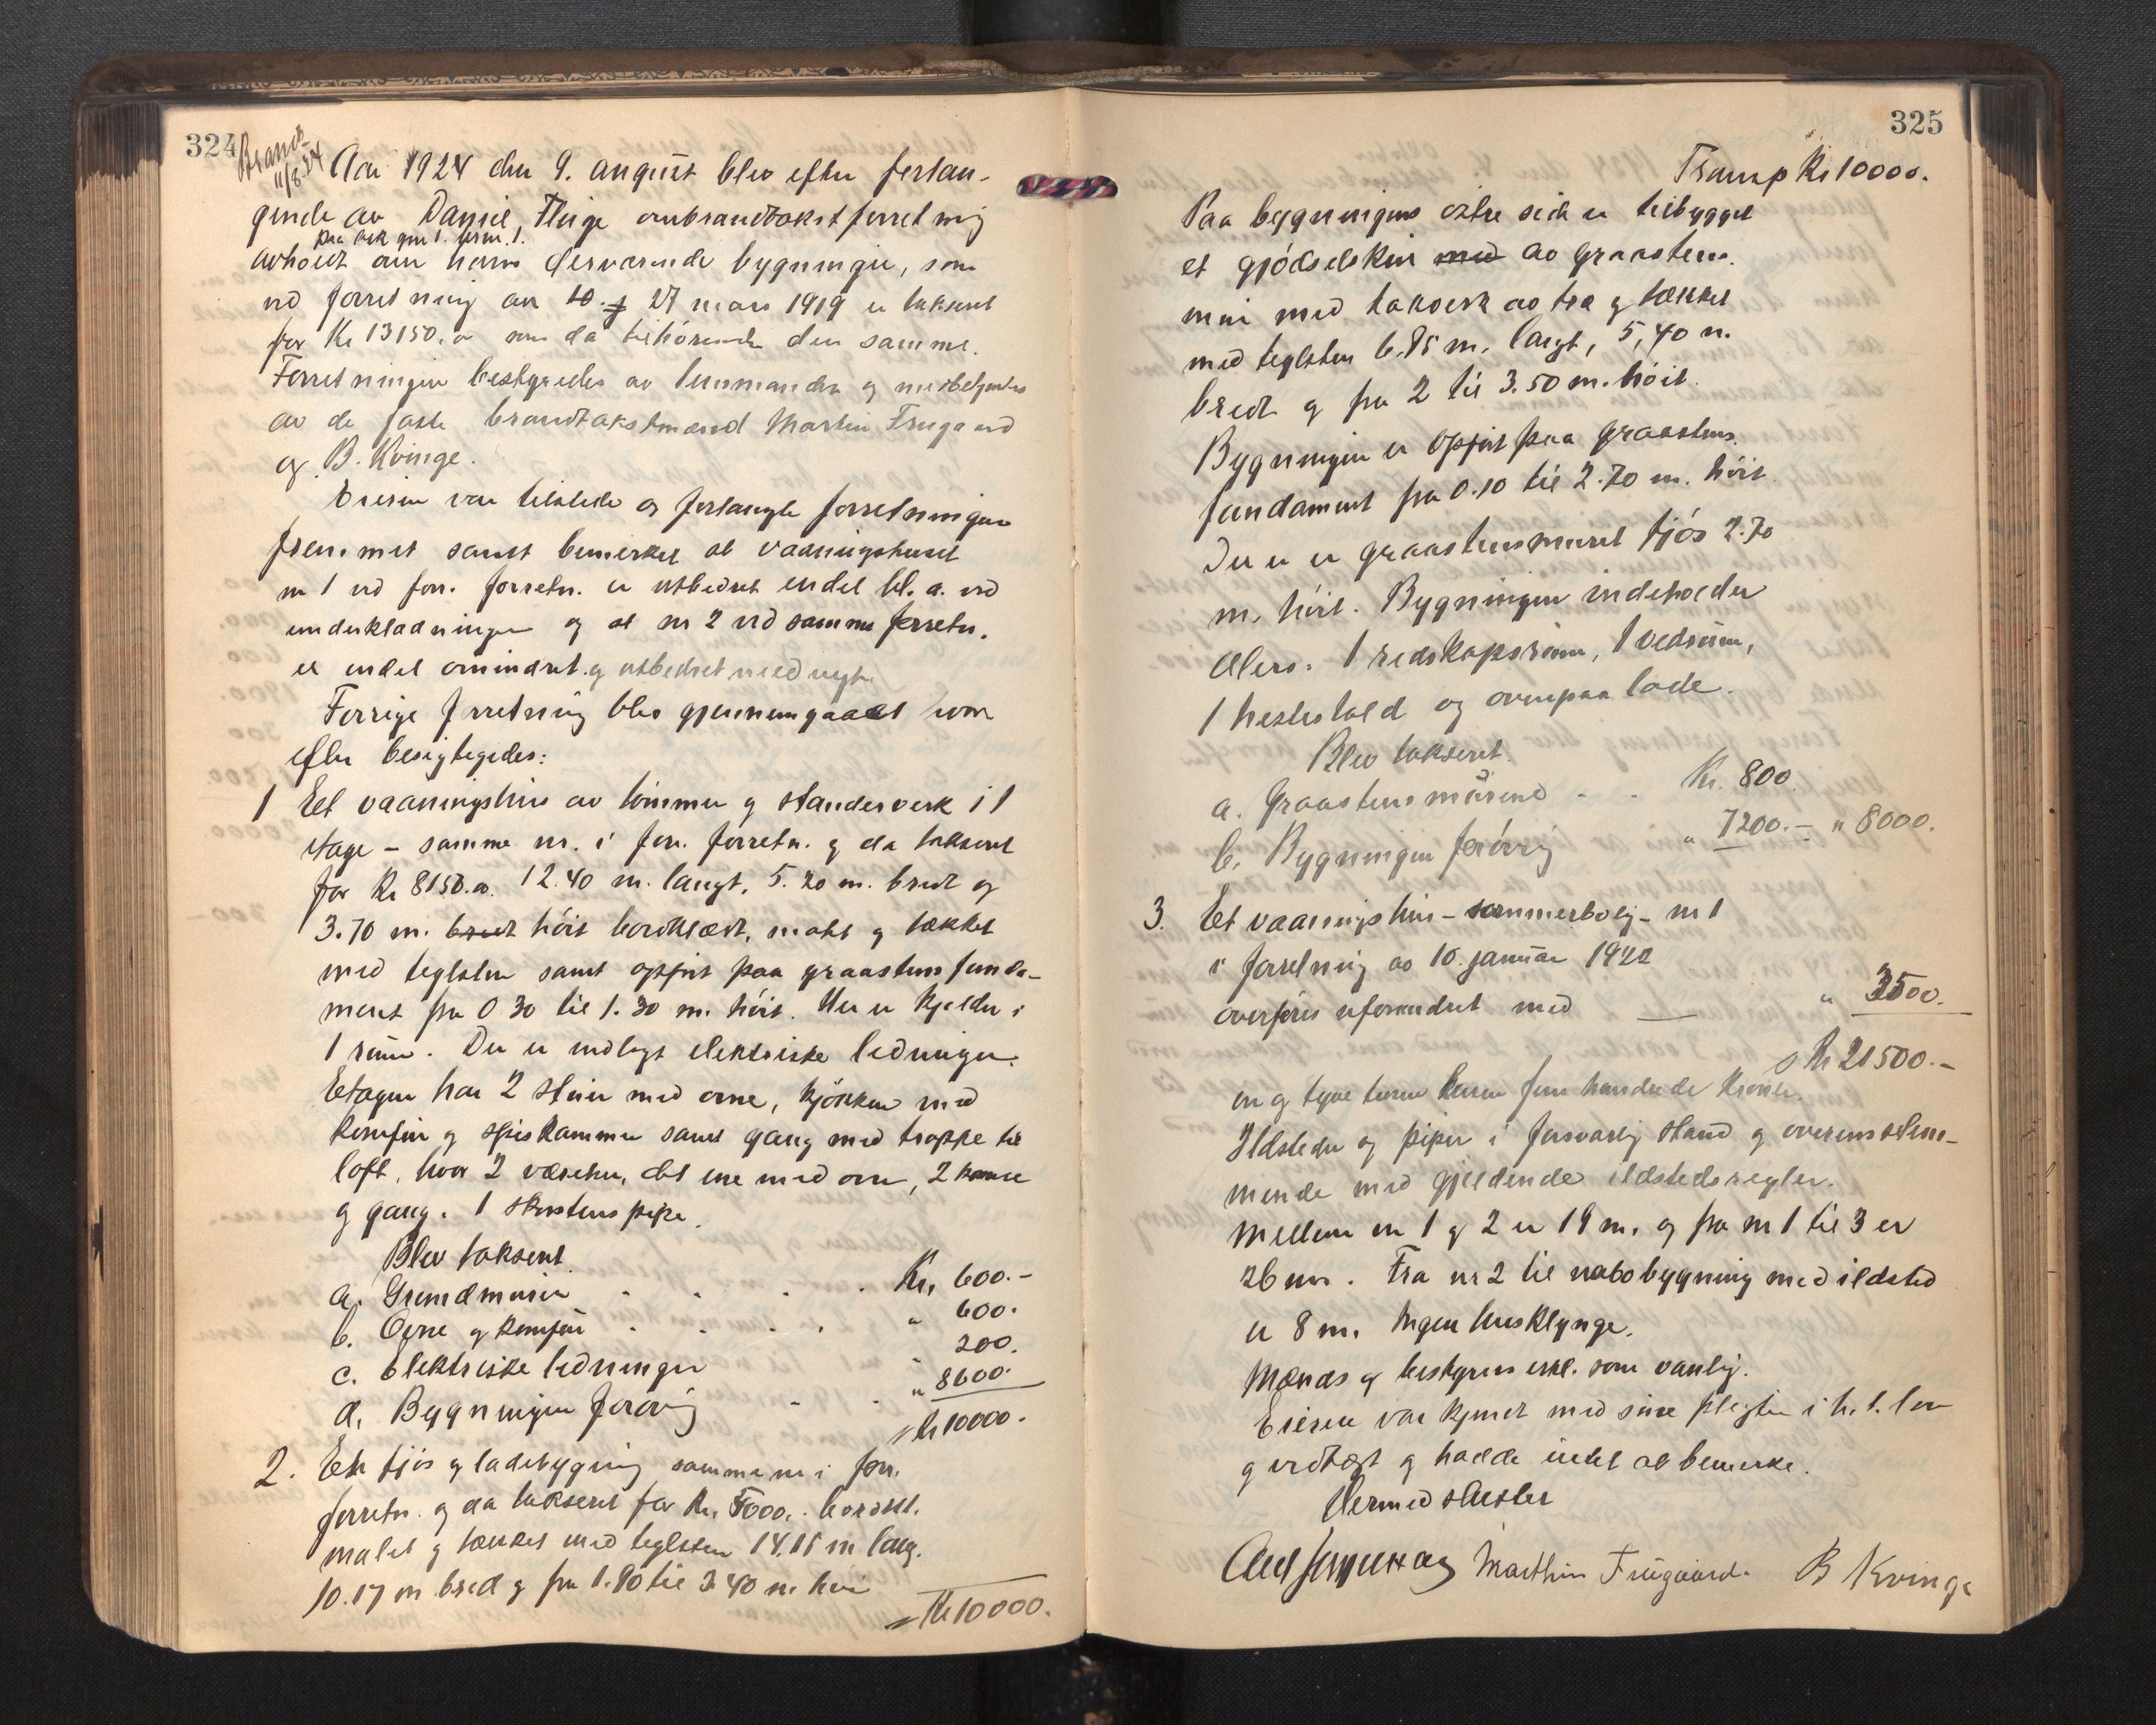 324
Brand
11/8.24
Aar 1924 den 9. august blev efter forlan-
gende av Daniel Fluge ombrandtakstforretning
paa Ask gnr 1. brnr. 1.
avholdt over hans derværende bygninger, som
ved forretning av 10. og 27 mars 1919 er taksert
for Kr 13150.00 som da tilhørende den samme.
Forretningen bestyredes av lensmanden og medbetjentes
av de faste brandtakstmænd Martin Frugaard
og B. Kvinge.
Eieren var tilstede og forlangte forretningen
fremmet samt bemerket at vaaningshuset
nr 1 ved forr. forretn. er utbedret endel bl. a. ved
underkladningen og at nr 2 ved samme forretn.
er endel omindret og utbedret med nyt.
Forrige forretning blev gjennemgaaet hvor
efter besigtigedes:
1 Et vaaningshus av tømmer og standerverk i 1
etage - samme nr. i forr. forretn. og da taksert
for Kr 8150.00. 12.40 m. langt, 5.20 m. bredt og
3.70 m. bredt høit bordklædt, malt og tækket
med teglsten samt opført paa graastens funda-
ment fra 0 30 til 1.30 m. høit. Der er kjelder i
1 rum. Der er indlagt elektriske ledninger.
Etagen har 2 stuer med ovne, kjøkken med
komfur og spiskammer samt gang med trappe til
loft, hvor 2 værelser, det ene med ovn, 2 
og gang. 1 skorstenspipe.
Blev taksert
a. Grundmuren . . . . Kr. 600.-
b. Ovne og komfur . . . . " 600.
c. Elektriske ledninger " 200.
d. Bygningen forøvrig - . " 8600.
Kr 10000.
2. Et fjøs og ladebygning samme nr i forr.
forretn. og da taksert for Kr. 5000.- bordkl.
malet og tækket med teglsten 14.15 m lang.
10.17 m bred og fra 1.80 til 3.40 m. høi
Kr 10000.
325
Transp Kr 10000.
Paa bygningens østre side er tilbygget
et gjødselskur med av graastens
mur med takverk av træ og tækket
med teglsten 6.85 m. langt, 5,40 m.
bredt og fra 2 til 3.50 m. høit.
Bygningen er opført paa graastens
fundament fra 0.10 til 2.70 m. høit.
Der er er graastensmuret fjøs 2.70
m. høit. Bygningen indeholder
ellers: 1 redskapsrum, 1 vedrum,
1 hestestald og ovenpaa lade.
Blev taksert.
a. Graastensmurene - . Kr. 800.
b. Bygningen forøvrig " 7200.- " 8000.
3. Et vaaningshus - sommerbolig - nr 1
i forretning av 10. januar 1922
overføres uforandret med " 3500.
Kr 21500.-
en og tyve tusen fem hundrede kroner.
Ildsteder og piper i forsvarlig stand og overensstem-
mende med gjeldende ildstedsregler.
Mellem nr 1 og 2 er 19 m. og fra nr 1 til 3 er
26 m. Fra nr 2 til nabobygning med ildsted
er 8 m. Ingen husklynge.
Mænds og bestyrers erkl. som vanlig.
Eieren var kjendt med sine plegter i h. t. lov
og vedtægt og hadde intet at bemerke.
Hermed sluttet
Marthin Frugaard. B Kvinge